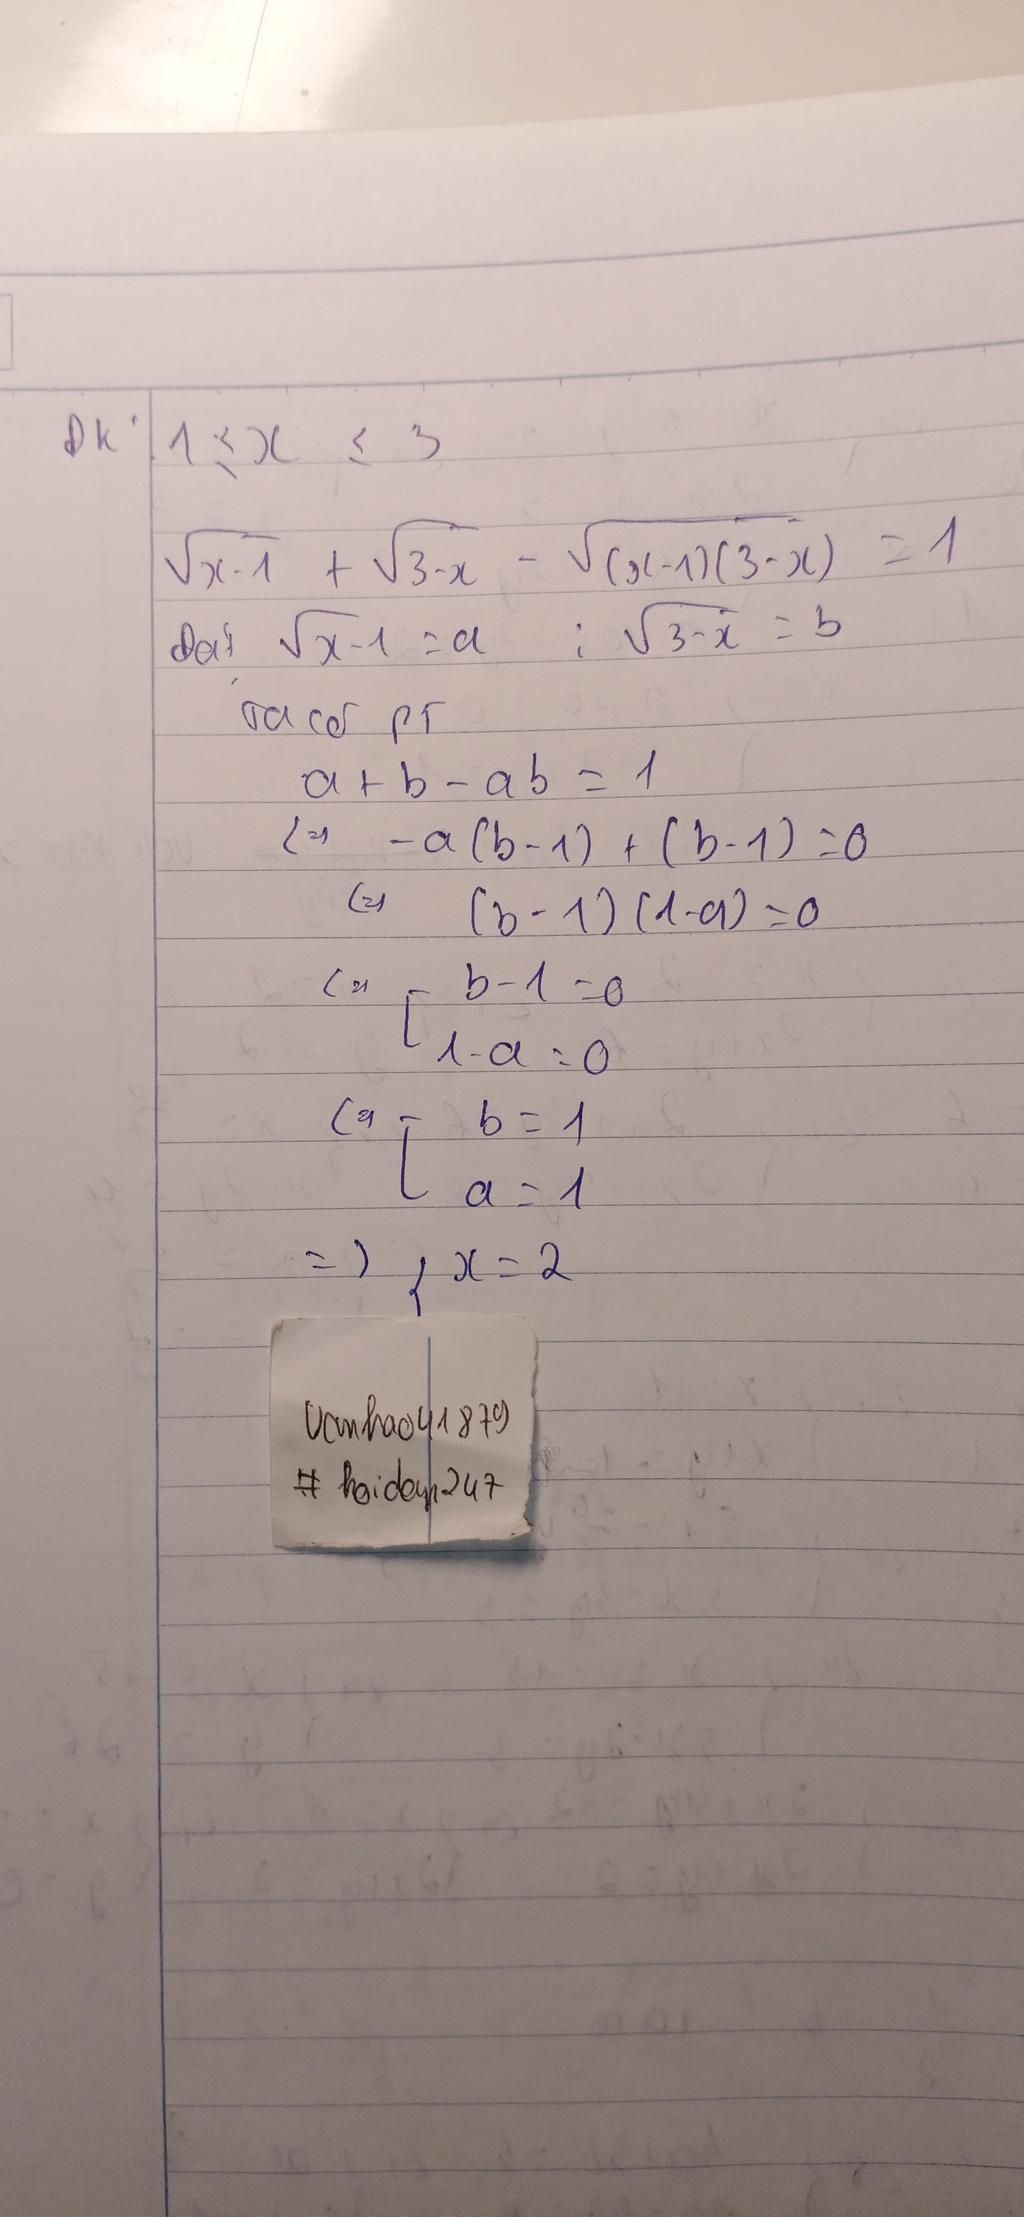 Đk: 1 ≤ x ≤ 3
√x-1 + √3-x - √(x-1)(3-x) = 1
Đặt √x-1 = a ; √3-x = b
Ta có PT
a + b - ab = 1
(=) -a(b-1) + (b-1) = 0
(=) (b-1)(1-a) = 0
(=) [ b-1 = 0
1-a = 0
(=) [ b = 1
a = 1
=) { x = 2
Vanhao41879
# hoidap247